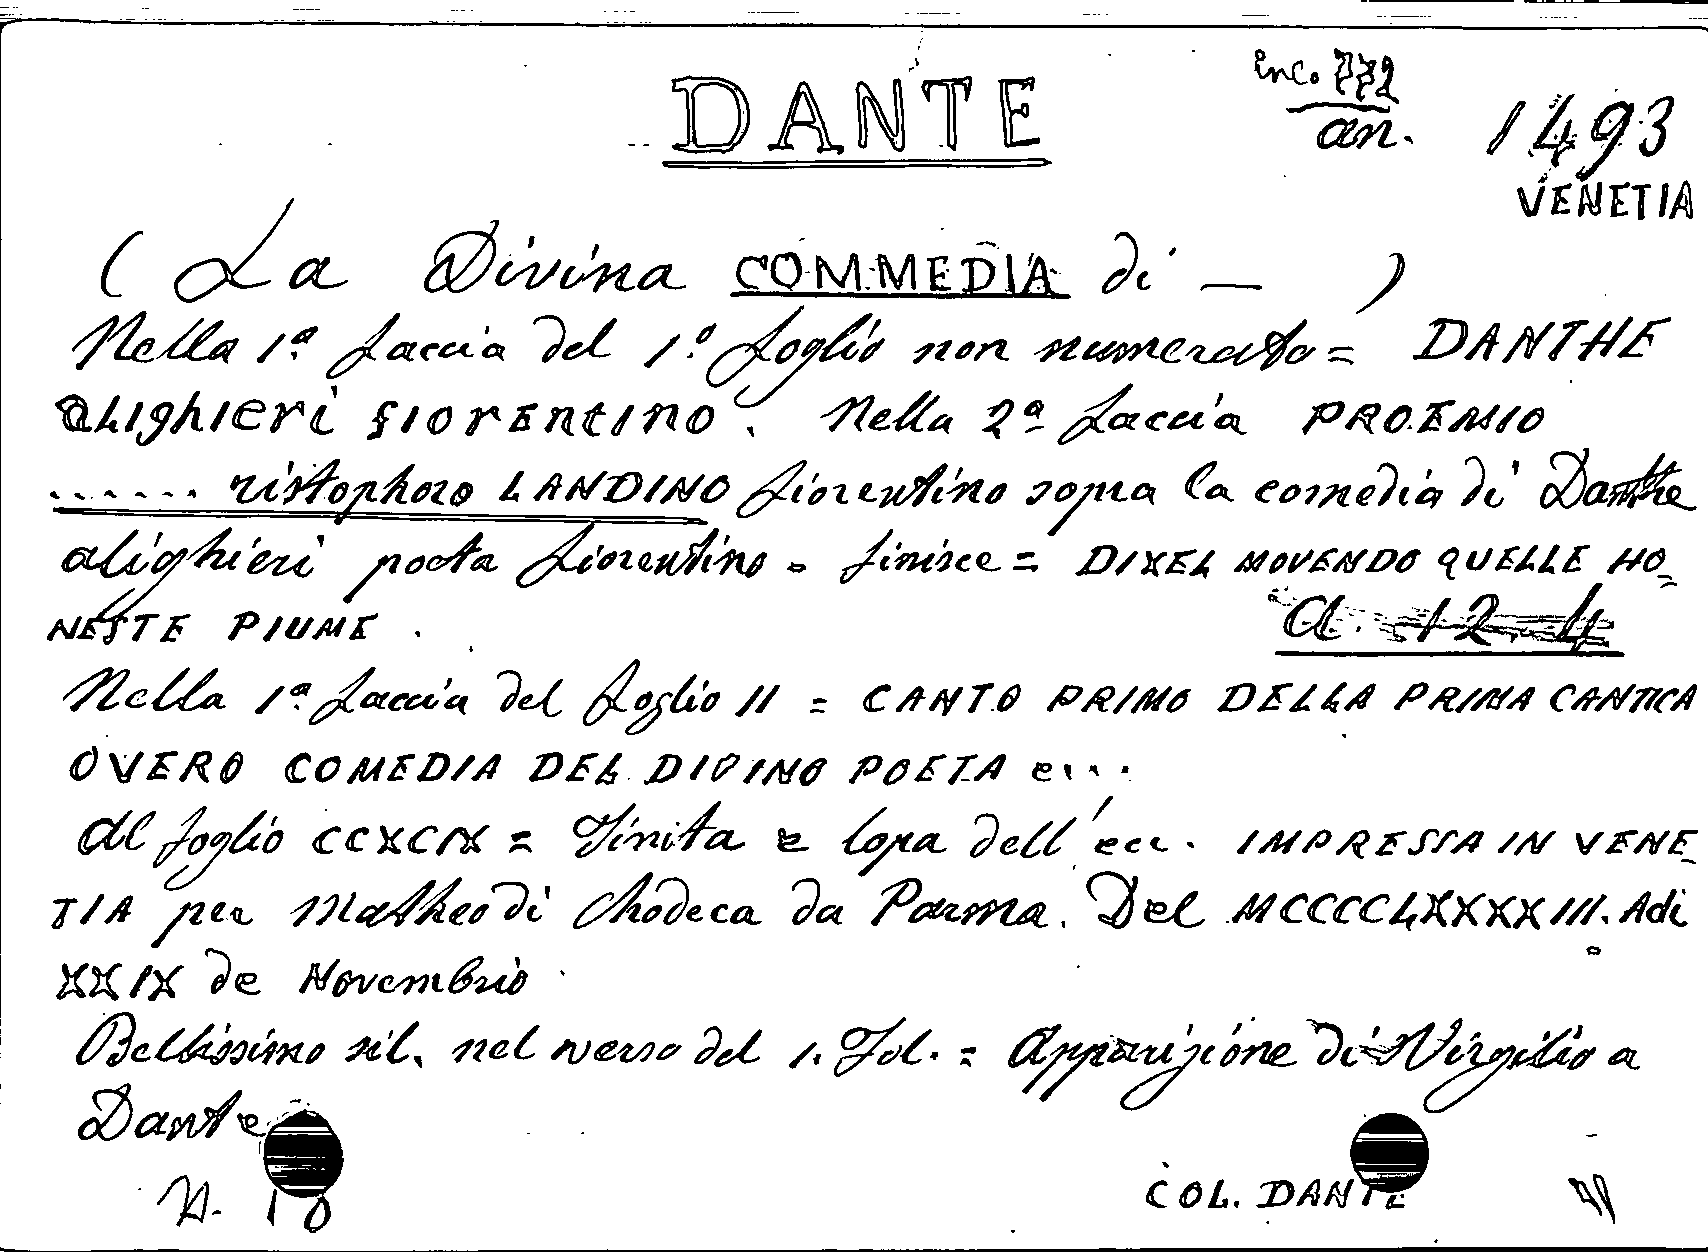 DANTE
inc. 772
an. 1493
VENETIA
( La Divina COMMEDIA di — )
Nella 1ª faccia del 1º foglio non numerato = DANTHE
ALIGhIERI FIORENTINO. Nella 2ª faccia PROEMIO
....... ristophoro LANDINO fiorentino sopra la comedia di Danthe
alighieri poeta fiorentino - finisce = DIXEL MOVENDO QUELLE HO-
NESTE PIUME .
a. 12. 4
Nella 1ª faccia del foglio 11 = CANTO PRIMO DELLA PRIMA CANTICA
OVERO COMEDIA DEL DIVINO POETA e....
Al foglio CCXCIX = Finita e lopa dell' ecc. IMPRESSA IN VENE-
TIA per Matheo di Chodeca da Parma. Del MCCCCLXXXXIII. Adi
XXIX de Novembrio
Bellissimo sil. nel verso del 1. Fol. = Apparizione di Virgilio a
Dante
N. 10
COL. DANTE